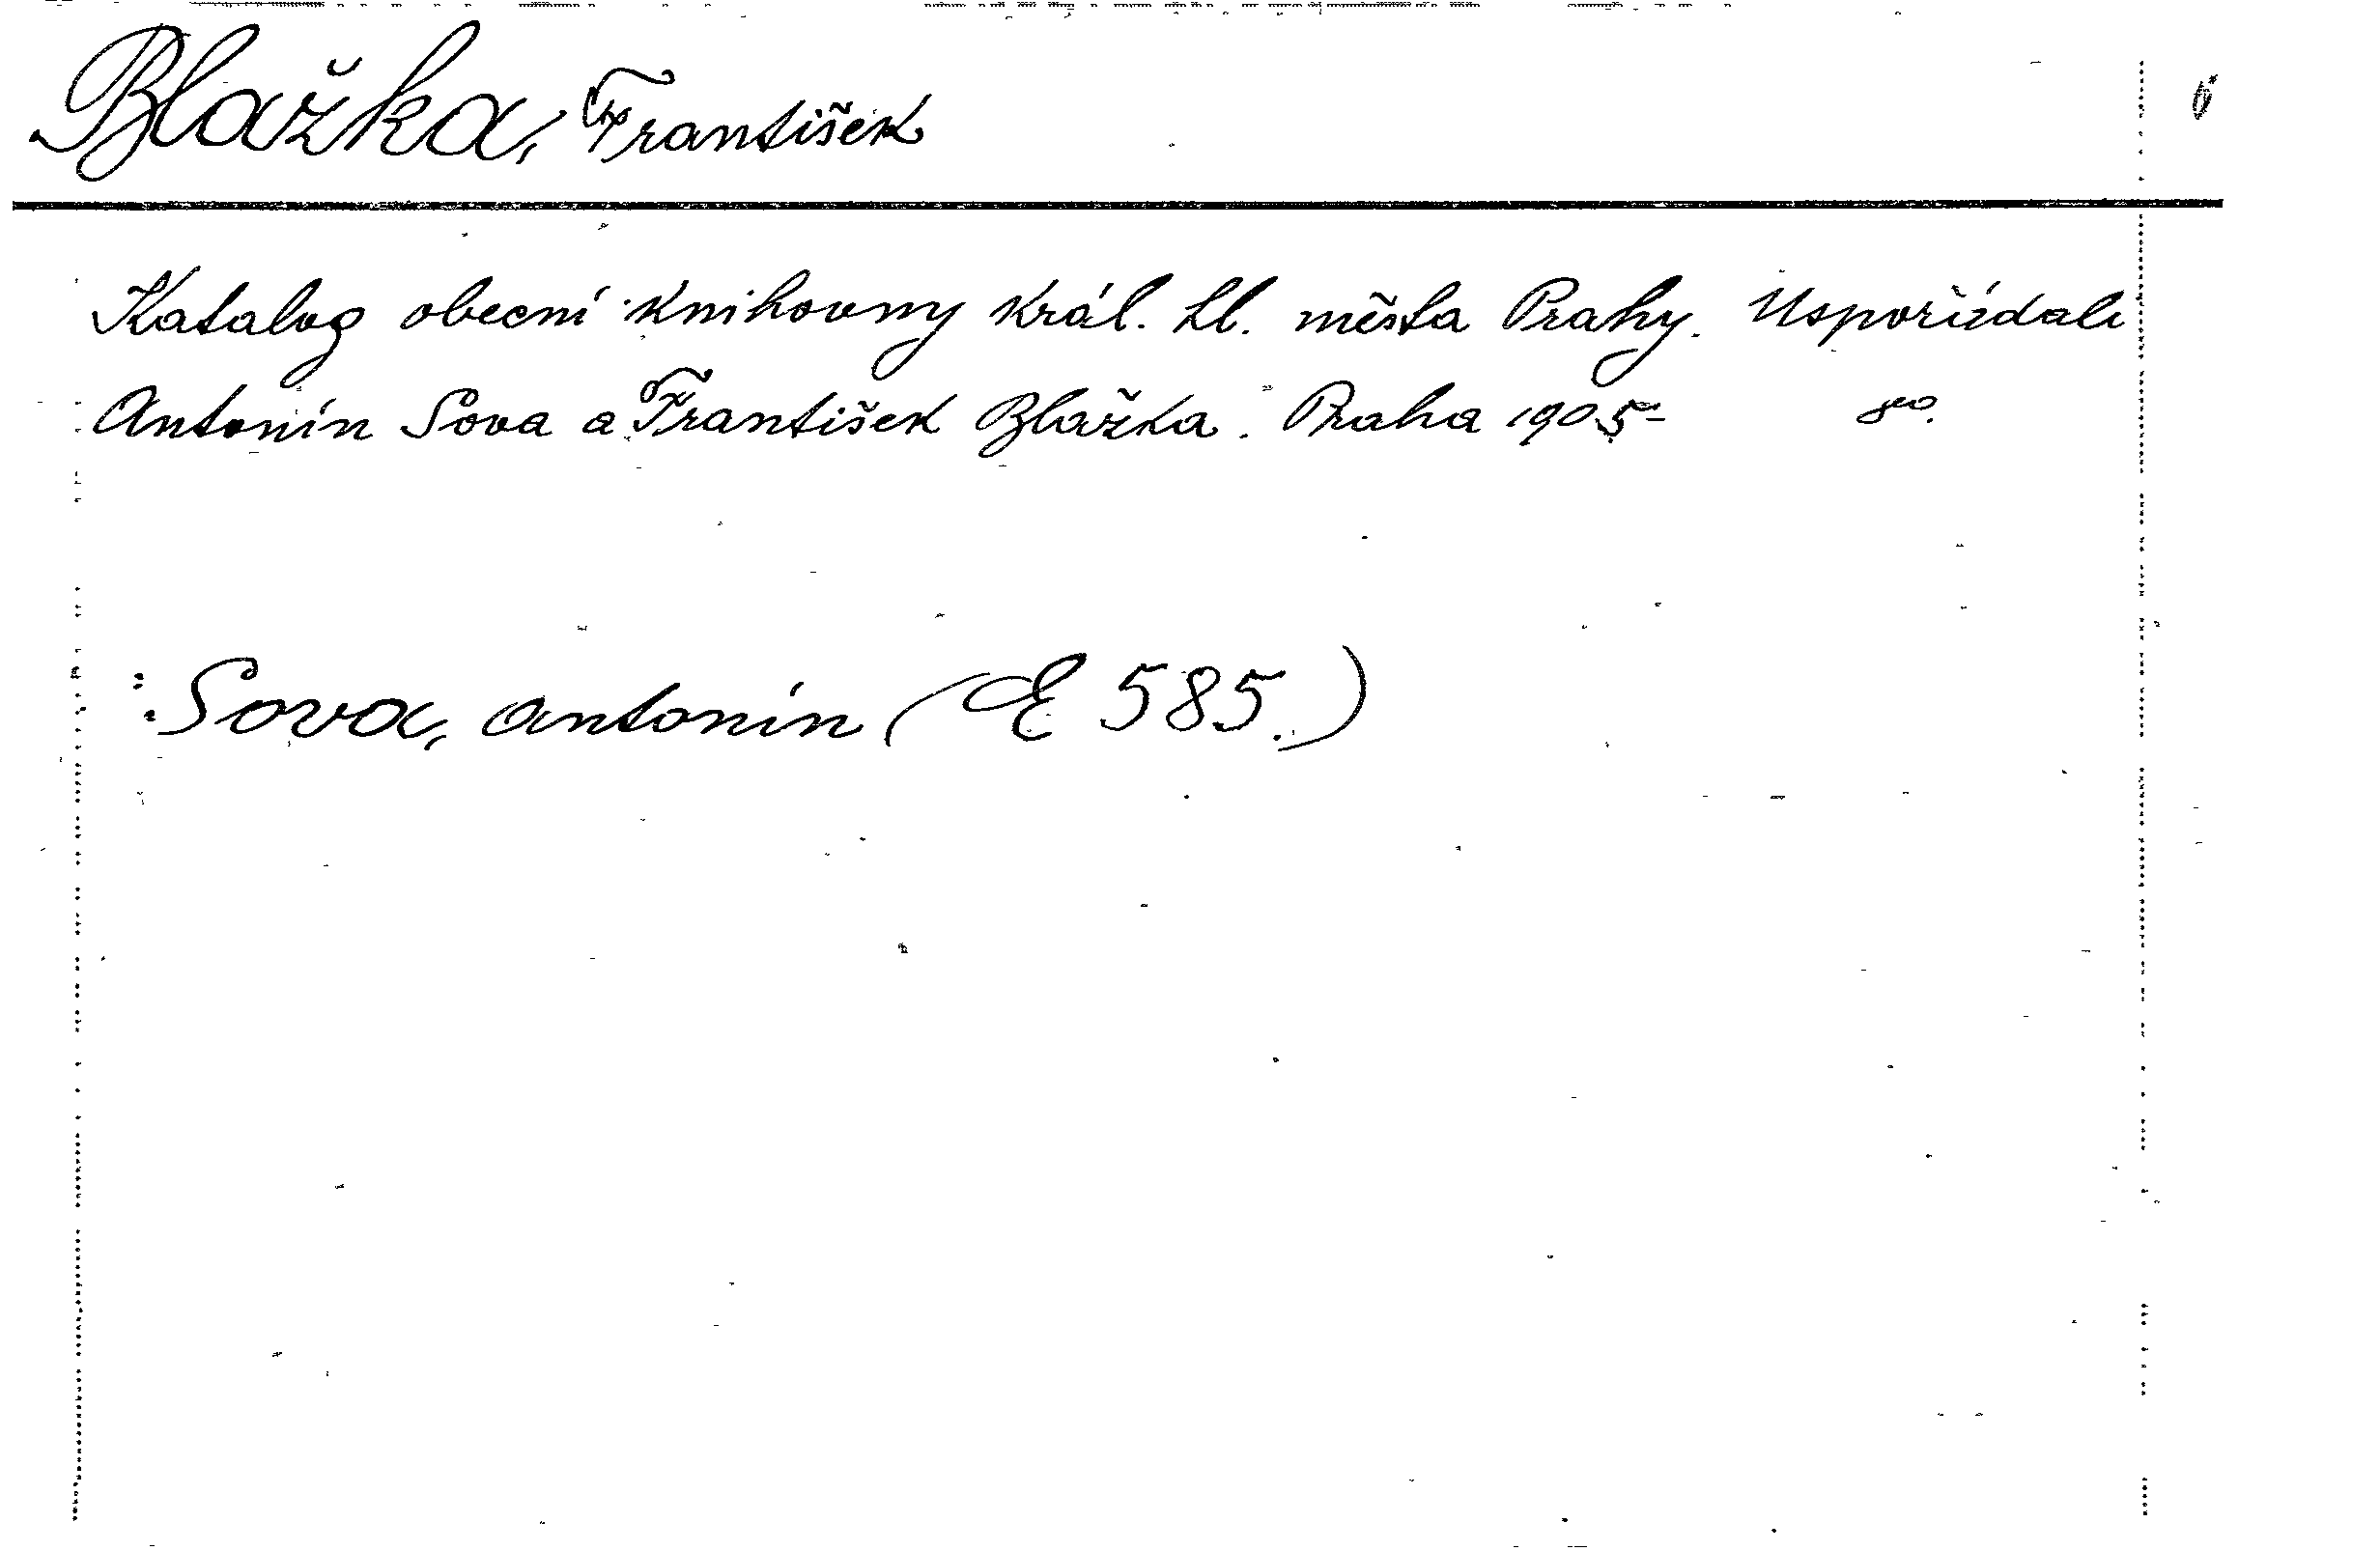 Blažka, František
Katalog obecní knihovny král. hl. města Prahy. Uspořádali
Antonín Sova a František Blažka. Praha 1905 8º.
: Sova, Antonín (E 585.)